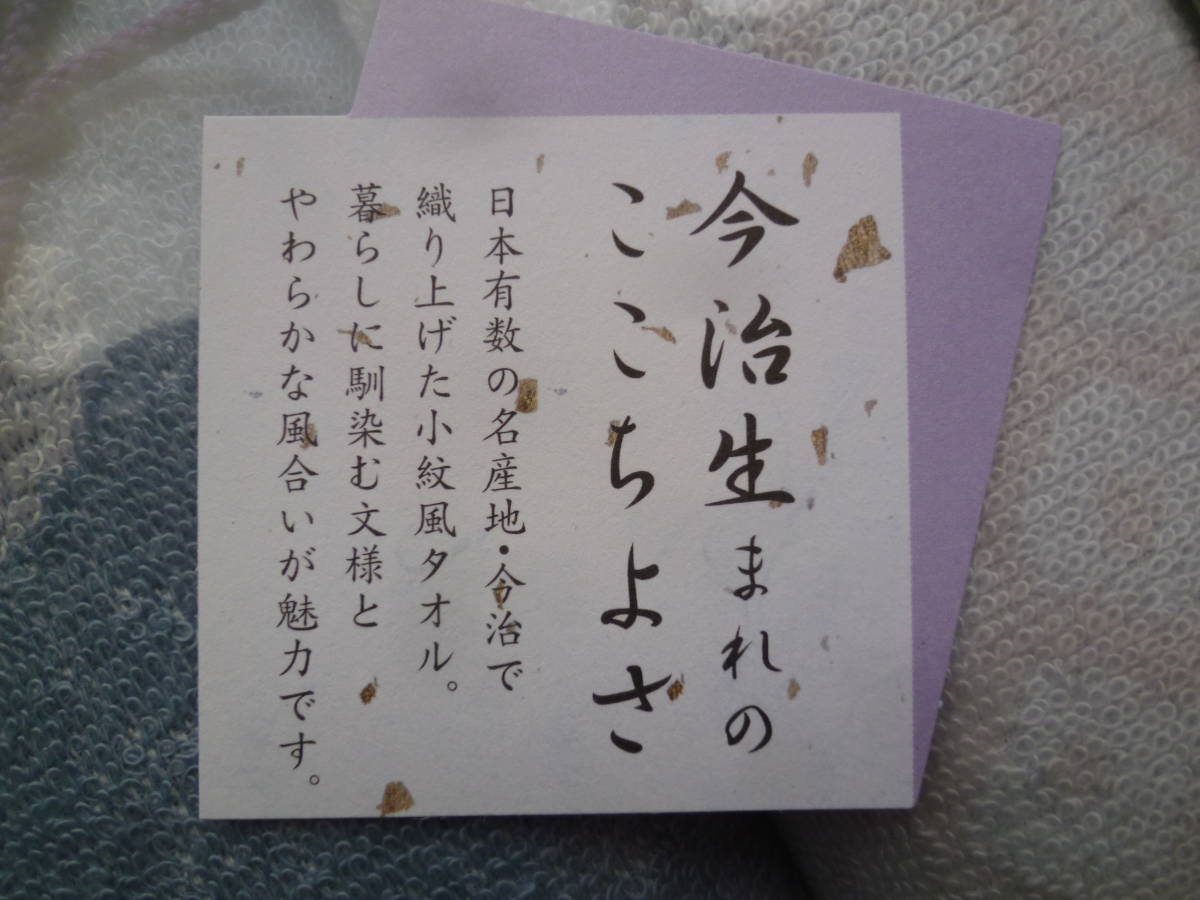 今治生まれの
ここちよさ
日本有数の名産地・今治で
織り上げた小紋風タオル。
暮らしに馴染む文様と
やわらかな風合いが魅力です。